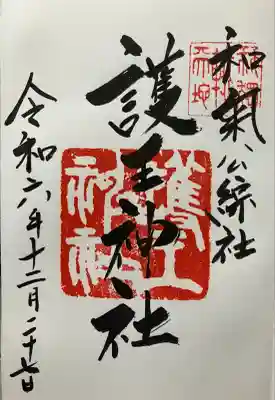 和氣公綜社
護王神社
護王神社
令和六年十二月二十七日